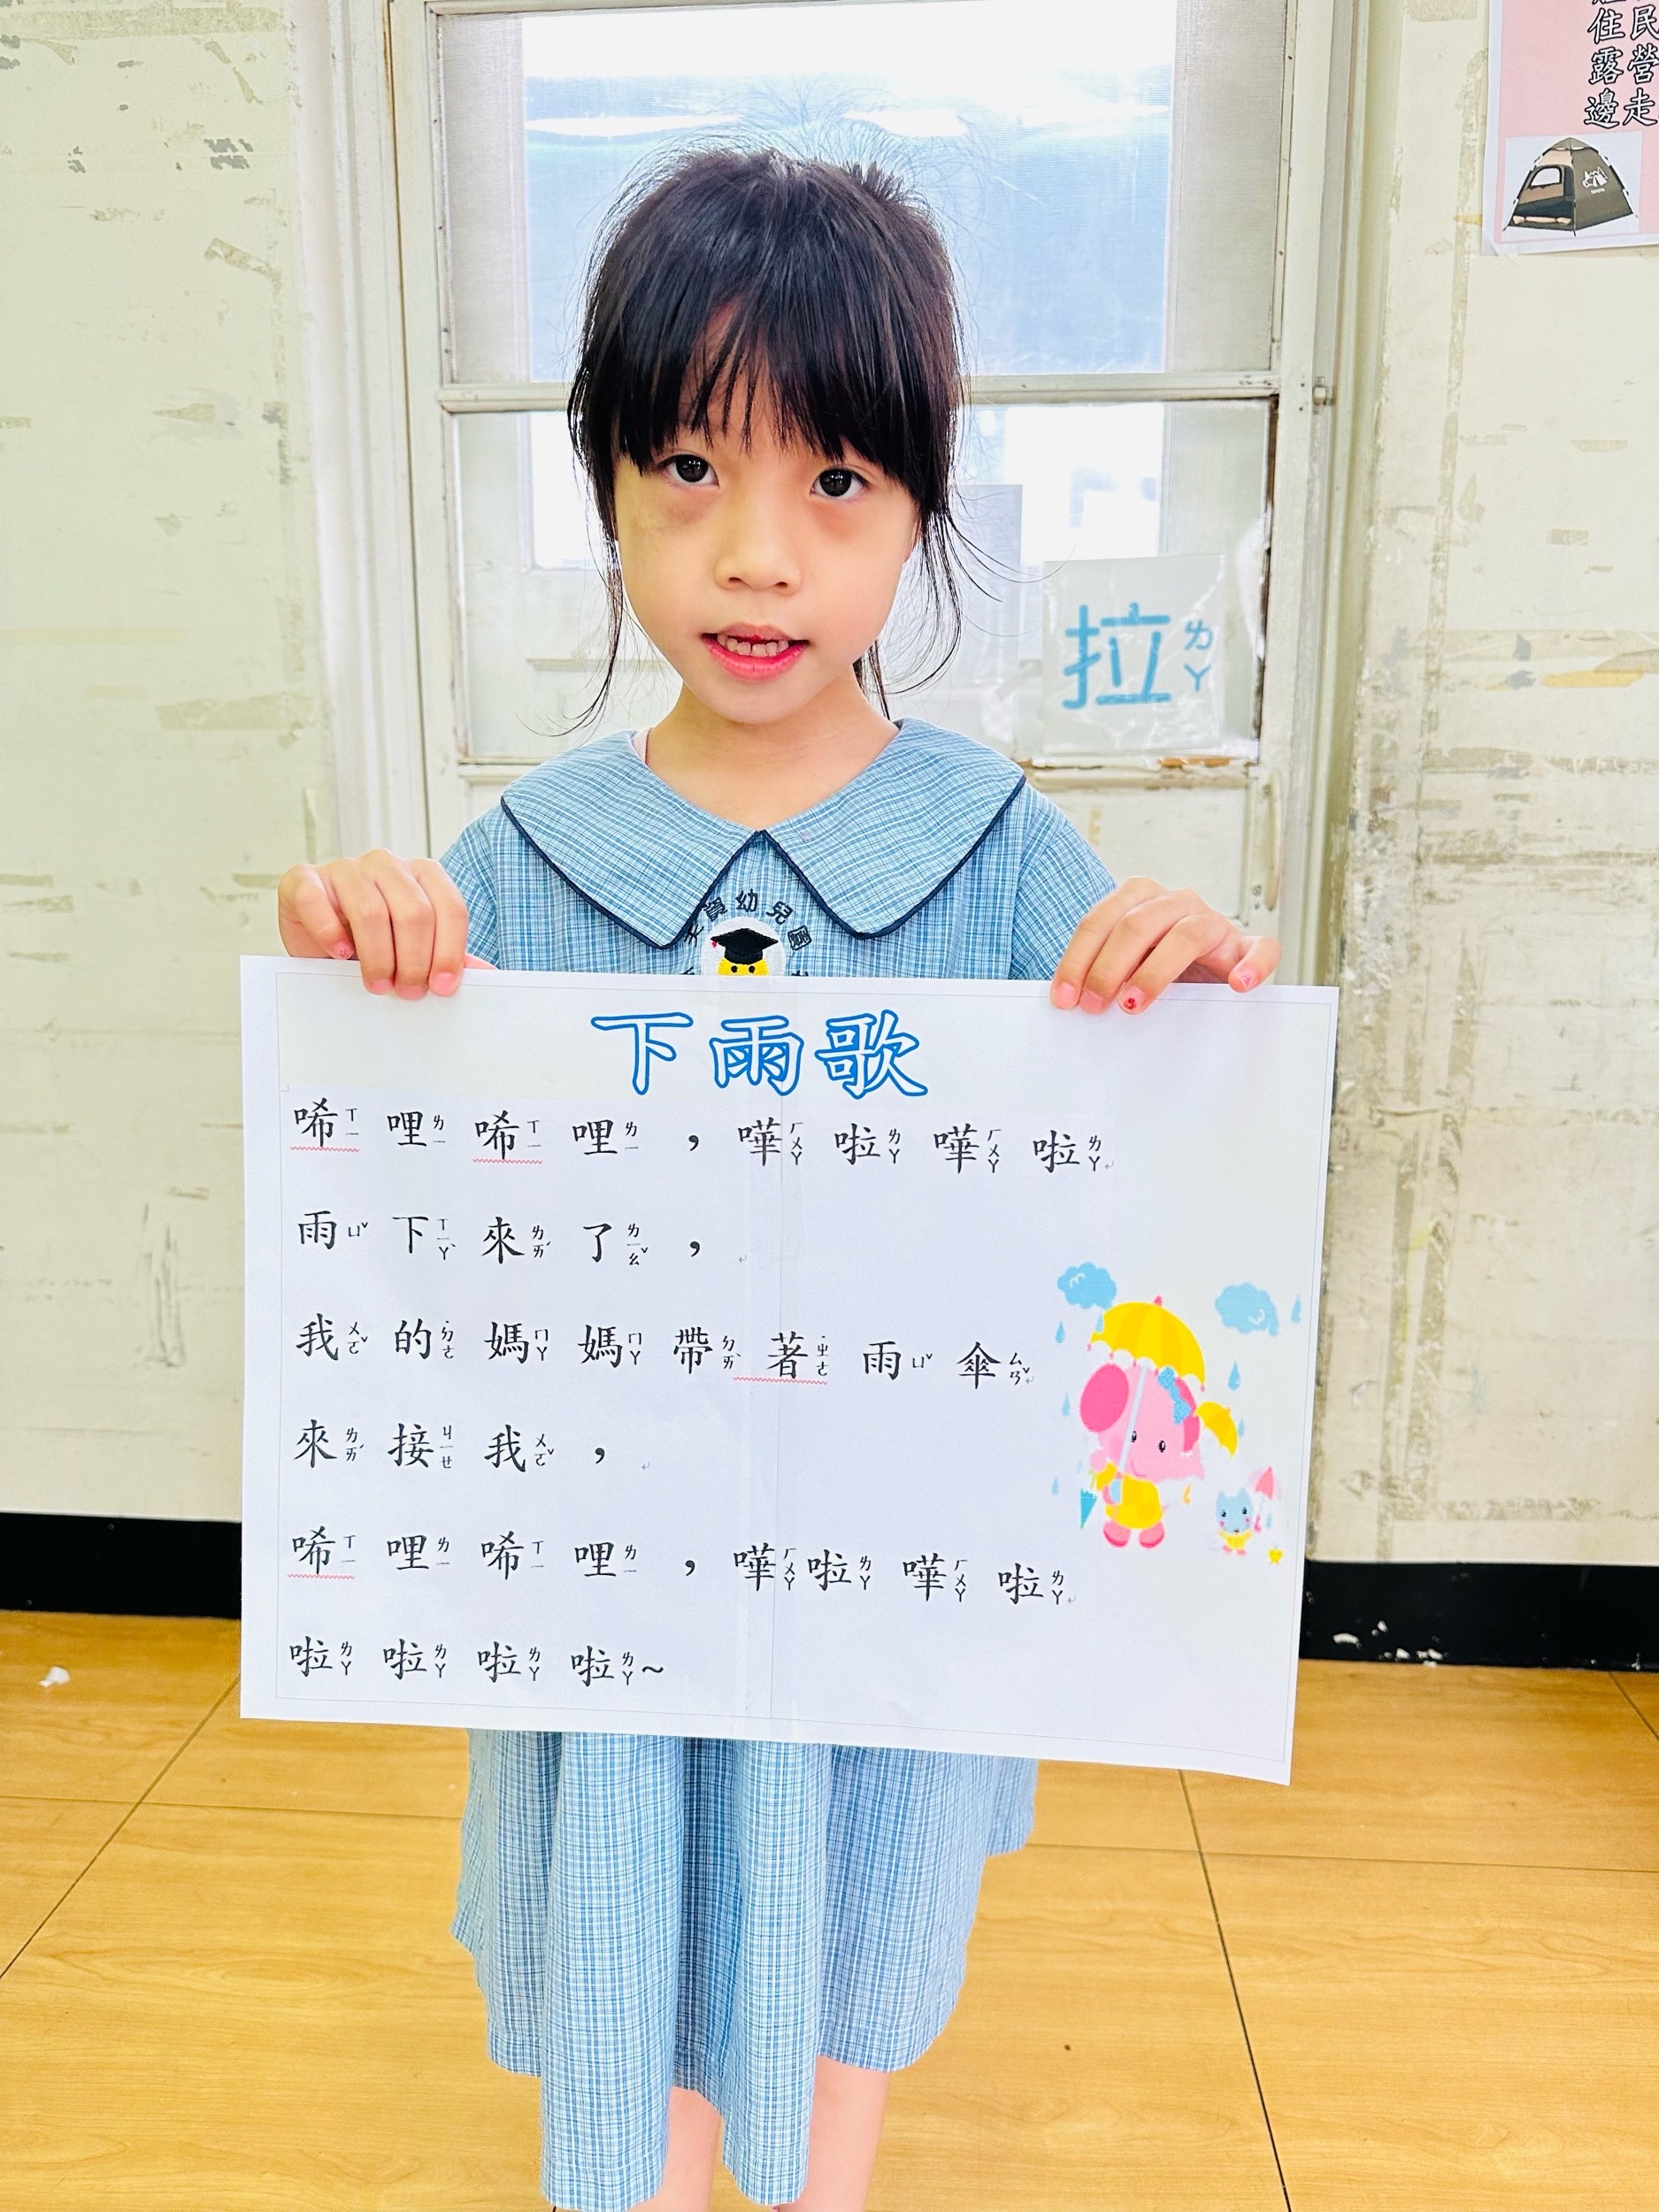 住民
露營
邊走
拉ㄌㄚ
幼兒園
下雨歌
唏ㄒㄧ 哩ㄌㄧ 唏ㄒㄧ 哩ㄌㄧ ，嘩ㄏㄨㄚ 啦ㄌㄚ 嘩ㄏㄨㄚ 啦ㄌㄚ
雨ㄩˇ 下ㄒㄧㄚˋ 來ㄌㄞˊ 了ㄌㄧㄠˇ ，
我ㄨㄛˇ 的˙ㄉㄜ 媽ㄇㄚ 媽ㄇㄚ 帶ㄉㄞˋ 著˙ㄓㄜ 雨ㄩˇ 傘ㄙㄢˇ
來ㄌㄞˊ 接ㄐㄧㄝ 我ㄨㄛˇ ，
唏ㄒㄧ 哩ㄌㄧ 唏ㄒㄧ 哩ㄌㄧ ，嘩ㄏㄨㄚ 啦ㄌㄚ 嘩ㄏㄨㄚ 啦ㄌㄚ
啦ㄌㄚ 啦ㄌㄚ 啦ㄌㄚ 啦ㄌㄚ~